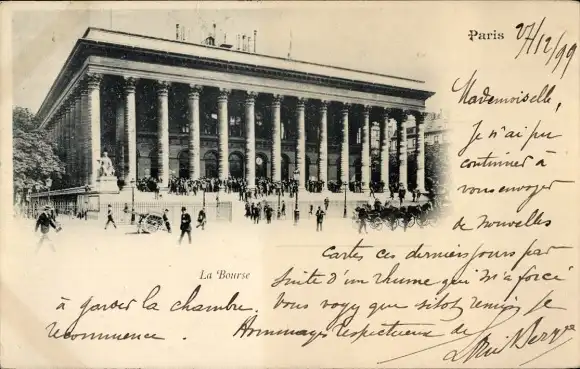 Paris
27/12/99
Mademoiselle,
Je n'ai pu
continuer à
vous envoyer
de nouvelles
Cartes ces derniers jours par
Suite d'un rhume qui m'a forcé
à garder la chambre.
Vous voyez que sitot remis je
recommence.
Hommages respectueux de
La Bourse